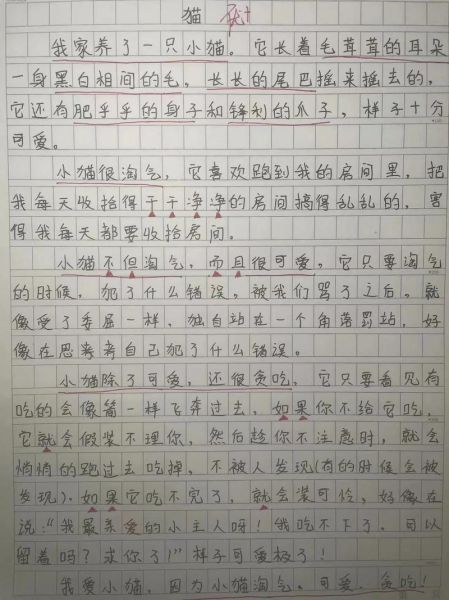 猫
我家养了一只小猫。它长着毛茸茸的耳朵
一身黑白相间的毛，长长的尾巴摇来摇去的，
它还有肥乎乎的身子和锋利的爪子，样子十分
可爱。
小猫很淘气，它喜欢跑到我的房间里，把
我每天收拾得干干净净的房间搞得乱乱的，害
得我每天都要收拾房间。
小猫不但淘气，而且很可爱，它只要淘气
的时候，犯了什么错误，被我们骂了之后，就
像受了委屈一样，独自站在一个角落罚站，好
像在思考考自己犯了什么错误。
小猫除了可爱，还很贪吃，它只要看见有
吃的会像箭一样飞奔过去，如果你不给它吃，
它就会假装不理你，然后趁你不注意时，就会
悄悄的跑过去吃掉，不被人发现(有的时候会被
发现)。如果它吃不完了，就会装可怜，好像在
说：“我最亲爱的小主人呀！我吃不下了，可以
留着吗？求你了！”样子可爱极了！
我爱小猫，因为小猫淘气、可爱、贪吃！